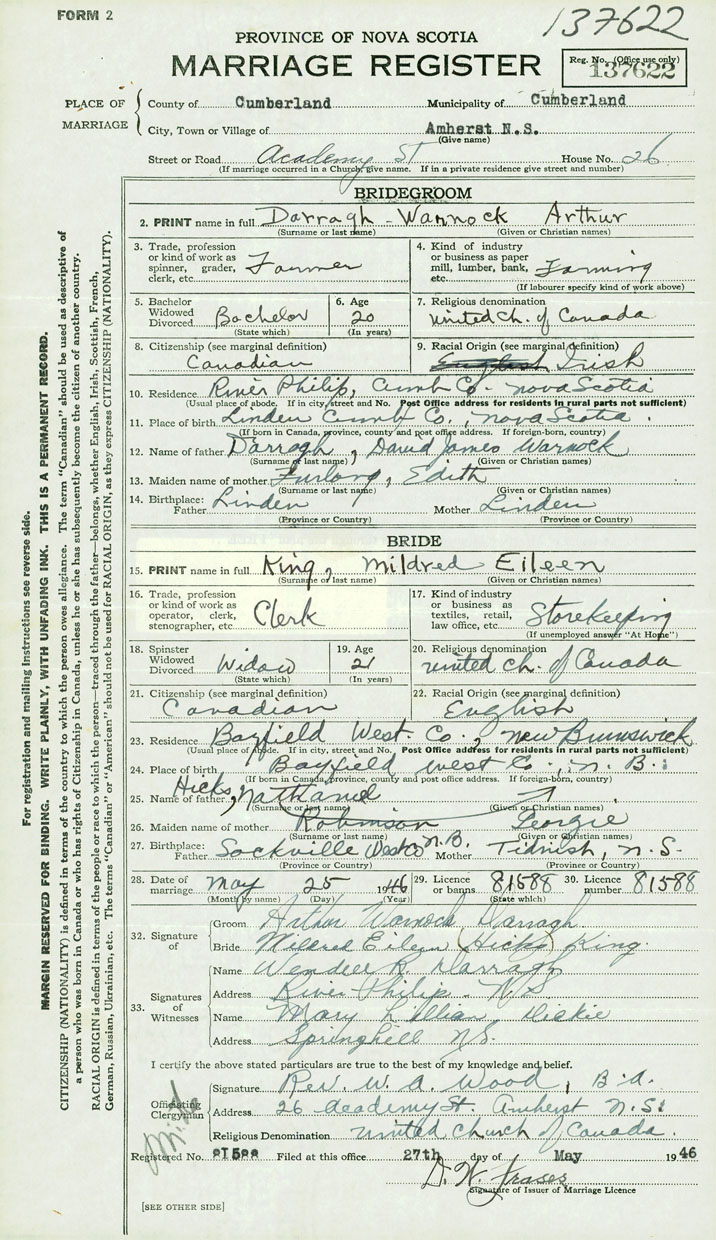 FORM 2
137622
PROVINCE OF NOVA SCOTIA
MARRIAGE REGISTER
Reg. No. (Office use only)
137622
PLACE OF MARRIAGE
County of Cumberland Municipality of Cumberland
City, Town or Village of Amherst N.S.
(Give name)
Street or Road Academy St House No. 26
(If marriage occurred in a Church, give name. If in a private residence give street and number)
BRIDEGROOM
2. PRINT name in full Darragh - Warnock Arthur
(Surname or last name) (Given or Christian names)
3. Trade, profession or kind of work as spinner, grader, clerk, etc. Farmer
4. Kind of industry or business as paper mill, lumber, bank, etc. Farming
(If labourer specify kind of work above)
5. Bachelor Widowed Divorced Bachelor
(State which)
6. Age 20
(In years)
7. Religious denomination United Ch. of Canada
8. Citizenship (see marginal definition) Canadian
9. Racial Origin (see marginal definition) English Irish
10. Residence River Philip, Cumb Co. Nova Scotia
(Usual place of abode. If in city, street and No. Post Office address for residents in rural parts not sufficient)
11. Place of birth Linden Cumb Co., Nova Scotia.
(If born in Canada, province, county and post office address. If foreign-born, country)
12. Name of father Darragh, David James Warnock
(Surname or last name) (Given or Christian names)
13. Maiden name of mother Furlong, Edith
(Surname or last name) (Given or Christian names)
14. Birthplace: Father Linden Mother Linden
(Province or Country) (Province or Country)
BRIDE
15. PRINT name in full King, Mildred Eileen
(Surname or last name) (Given or Christian names)
16. Trade, profession or kind of work as operator, clerk, stenographer, etc. Clerk
17. Kind of industry or business as textiles, retail, law office, etc. Storekeeping
(If unemployed answer "At Home")
18. Spinster Widowed Divorced Widow
(State which)
19. Age 21
(In years)
20. Religious denomination United Ch. of Canada
21. Citizenship (see marginal definition) Canadian
22. Racial Origin (see marginal definition) English
23. Residence Bayfield West. Co. New Brunswick
(Usual place of abode. If in city, street and No. Post Office address for residents in rural parts not sufficient)
24. Place of birth Bayfield West Co. N. B.
(If born in Canada, province, county and post office address. If foreign-born, country)
25. Name of father Hicks, Nathaniel
(Surname or last name) (Given or Christian names)
26. Maiden name of mother Robinson Georgie
(Surname or last name) (Given or Christian names)
27. Birthplace: Father Sackville West Co N.B. Mother Tidnish, N.S.
(Province or Country) (Province or Country)
28. Date of marriage May 25 1946
(Month by name) (Day) (Year)
29. Licence or banns 81588
(State which)
30. Licence number 81588
32. Signature of
Groom Arthur Warnock Darragh
Bride Mildred Eileen (Hicks) King
33. Signatures of Witnesses
Name Wendell R. Darragh
Address River Philip - N.S
Name Mary Lillian Dickie
Address Springhill N.S.
I certify the above stated particulars are true to the best of my knowledge and belief.
Officiating Clergyman
Signature Rev. W. A. Wood, B.A.
Address 26 Academy St. Amherst N.S.
Religious Denomination United Church of Canada.
Registered No. Filed at this office 27th day of May 1946
D. W. Fraser
Signature of Issuer of Marriage Licence
[SEE OTHER SIDE]
For registration and mailing instructions see reverse side.
MARGIN RESERVED FOR BINDING. WRITE PLAINLY, WITH UNFADING INK. THIS IS A PERMANENT RECORD.
CITIZENSHIP (NATIONALITY) is defined in terms of the country to which the person owes allegiance. The term "Canadian" should be used as descriptive of
a person who was born in Canada or who has rights of Citizenship in Canada, unless he or she has subsequently become the citizen of another country.
RACIAL ORIGIN is defined in terms of the people or race to which the person—traced through the father—belongs, whether English, Irish, Scottish, French,
German, Russian, Ukrainian, etc. The terms "Canadian" or "American" should not be used for RACIAL ORIGIN, as they express CITIZENSHIP (NATIONALITY).